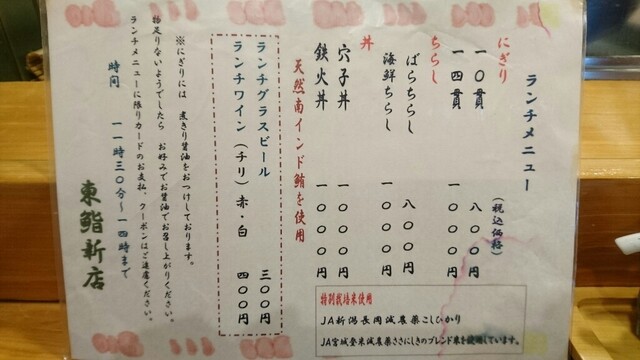 ランチメニュー
(税込価格)
にぎり
一〇貫 八〇〇円
一四貫 一〇〇〇円
ちらし
ばらちらし 八〇〇円
海鮮ちらし 一〇〇〇円
丼
穴子丼 一〇〇〇円
鉄火丼 一〇〇〇円
天然南インド鮪を使用
特別栽培米使用
JA新潟長岡減農薬こしひかり
JA宮城登米減農薬ささにしきのブレンド米を使用しています。
ランチグラスビール 三〇〇円
ランチワイン(チリ)赤・白 四〇〇円
※にぎりには 煮きり醤油をおつけしております。
物足りないようでしたら お好みでお醤油でお召し上がりください。
ランチメニューに限りカードのお支払、クーポンはご遠慮ください。
時間 一一時三〇分~一四時まで
東鮨新店